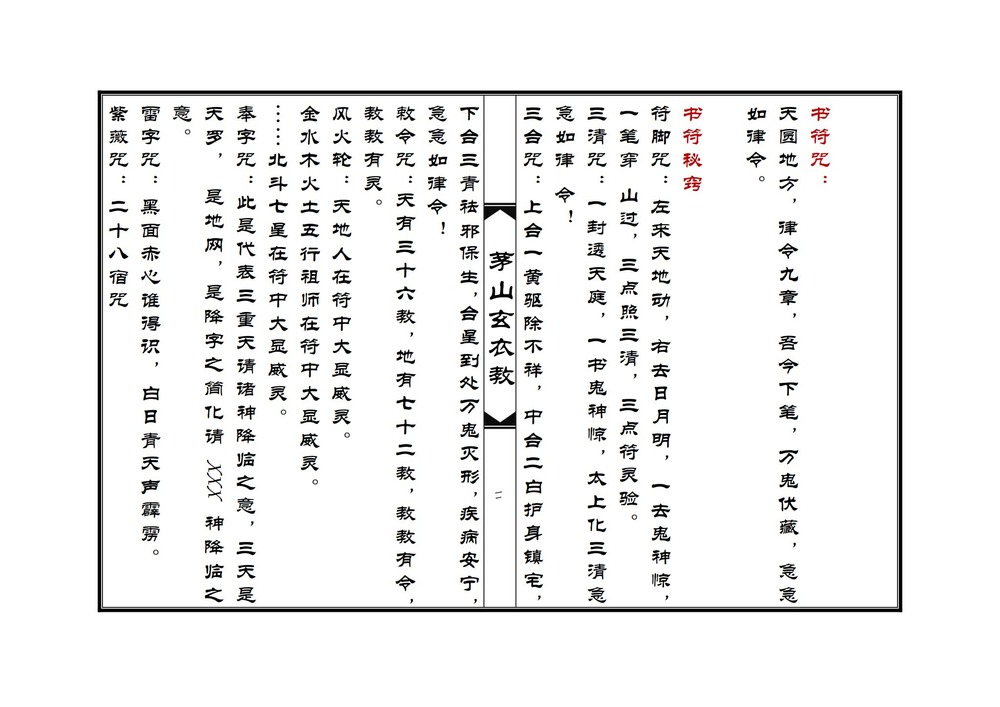 书符咒：
天圆地方，律令九章，吾今下笔，万鬼伏藏，急急
如律令。
书符秘窍
符脚咒：左来天地动，右去日月明，一去鬼神惊，
一笔穿 山过，三点照三清，三点符灵验。
三清咒：一封透天庭，一书鬼神惊，太上化三清急
急如律 令！
三台咒：上台一黄驱除不祥，中台二白护身镇宅，
茅山玄衣教
二
下台三青祛邪保生，台星到处万鬼灭形，疾病安宁，
急急如律令！
敕令咒：天有三十六教，地有七十二教，教教有令，
教教有灵。
风火轮：天地人在符中大显威灵。
金水木火土五行祖师在符中大显威灵。
……北斗七星在符中大显威灵。
奉字咒：此是代表三重天请诸神降临之意，三天是
天罗， 是地网，是降字之简化请 XXX 神降临之
意。
雷字咒：黑面赤心谁得识，白日青天声霹雳。
紫薇咒：二十八宿咒